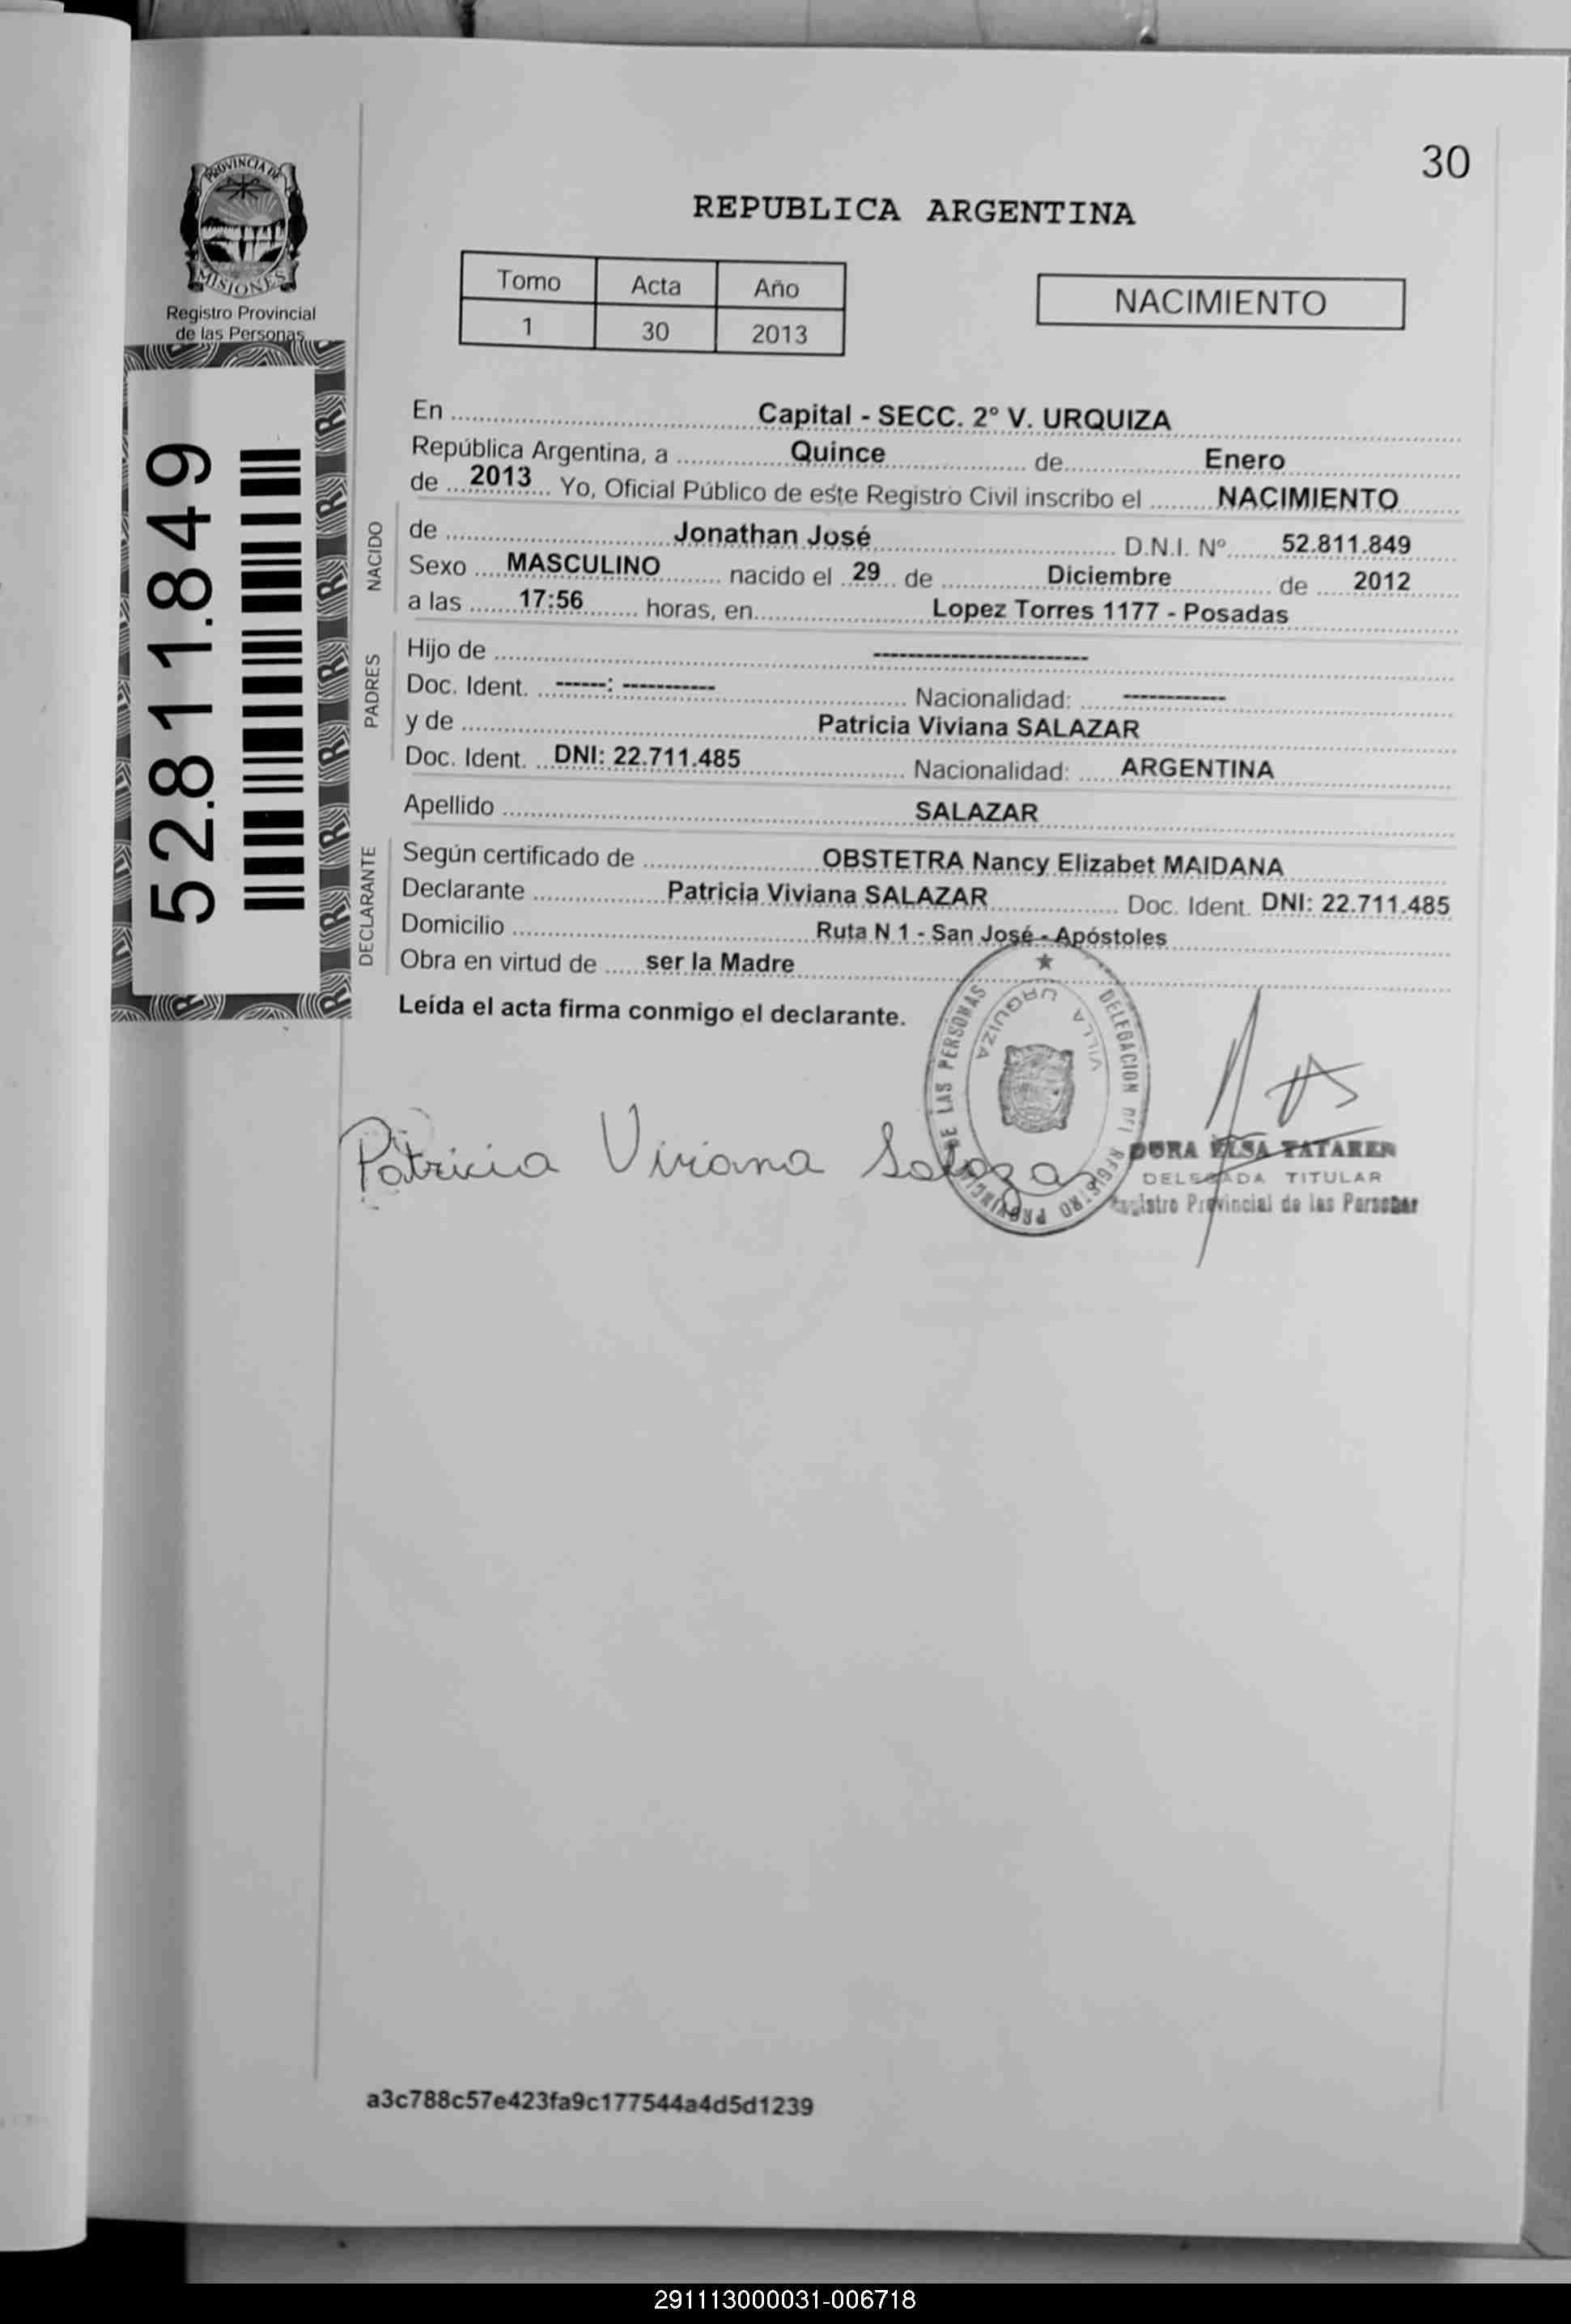 30
PROVINCIA DE
MISIONES
Registro Provincial
de las Personas
REPUBLICA ARGENTINA
Tomo Acta Año
1 30 2013
NACIMIENTO
52.811.849
En Capital - SECC. 2° V. URQUIZA
República Argentina, a Quince de Enero
de 2013 Yo, Oficial Público de este Registro Civil inscribo el NACIMIENTO
NACIDO
de Jonathan José D.N.I. Nº 52.811.849
Sexo MASCULINO nacido el 29 de Diciembre de 2012
a las 17:56 horas, en Lopez Torres 1177 - Posadas
PADRES
Hijo de ------------------------
Doc. Ident. ------: ----------- Nacionalidad: ------------
y de Patricia Viviana SALAZAR
Doc. Ident. DNI: 22.711.485 Nacionalidad: ARGENTINA
Apellido SALAZAR
DECLARANTE
Según certificado de OBSTETRA Nancy Elizabet MAIDANA
Declarante Patricia Viviana SALAZAR Doc. Ident. DNI: 22.711.485
Domicilio Ruta N 1 - San José - Apóstoles
Obra en virtud de ser la Madre
Leída el acta firma conmigo el declarante.
DELEGACION DEL REGISTRO PROVINCIAL DE LAS PERSONAS
VILLA URQUIZA
Patricia Viviana Salazar
DORA ELSA
DELEGADA TITULAR
Registro Provincial de las Personas
a3c788c57e423fa9c177544a4d5d1239
291113000031-006718